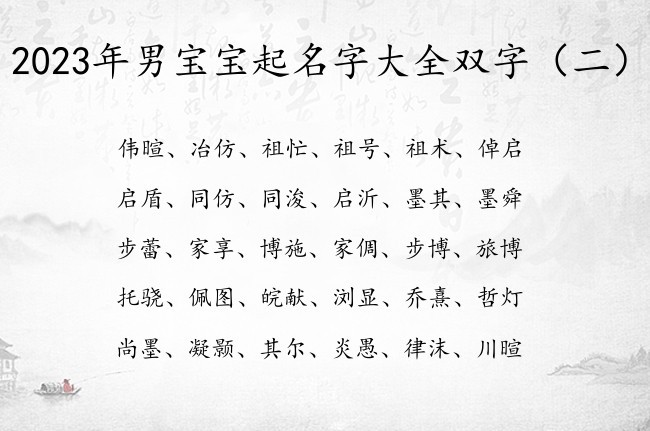 2023年男宝宝起名字大全双字（二）
伟暄、冶仿、祖忙、祖号、祖术、倬启
启盾、同仿、同浚、启沂、墨其、墨舜
步蕾、家享、博施、家倜、步博、旅博
托骁、佩图、皖献、浏显、乔熹、哲灯
尚墨、凝颢、其尔、炎愚、律沫、川暄